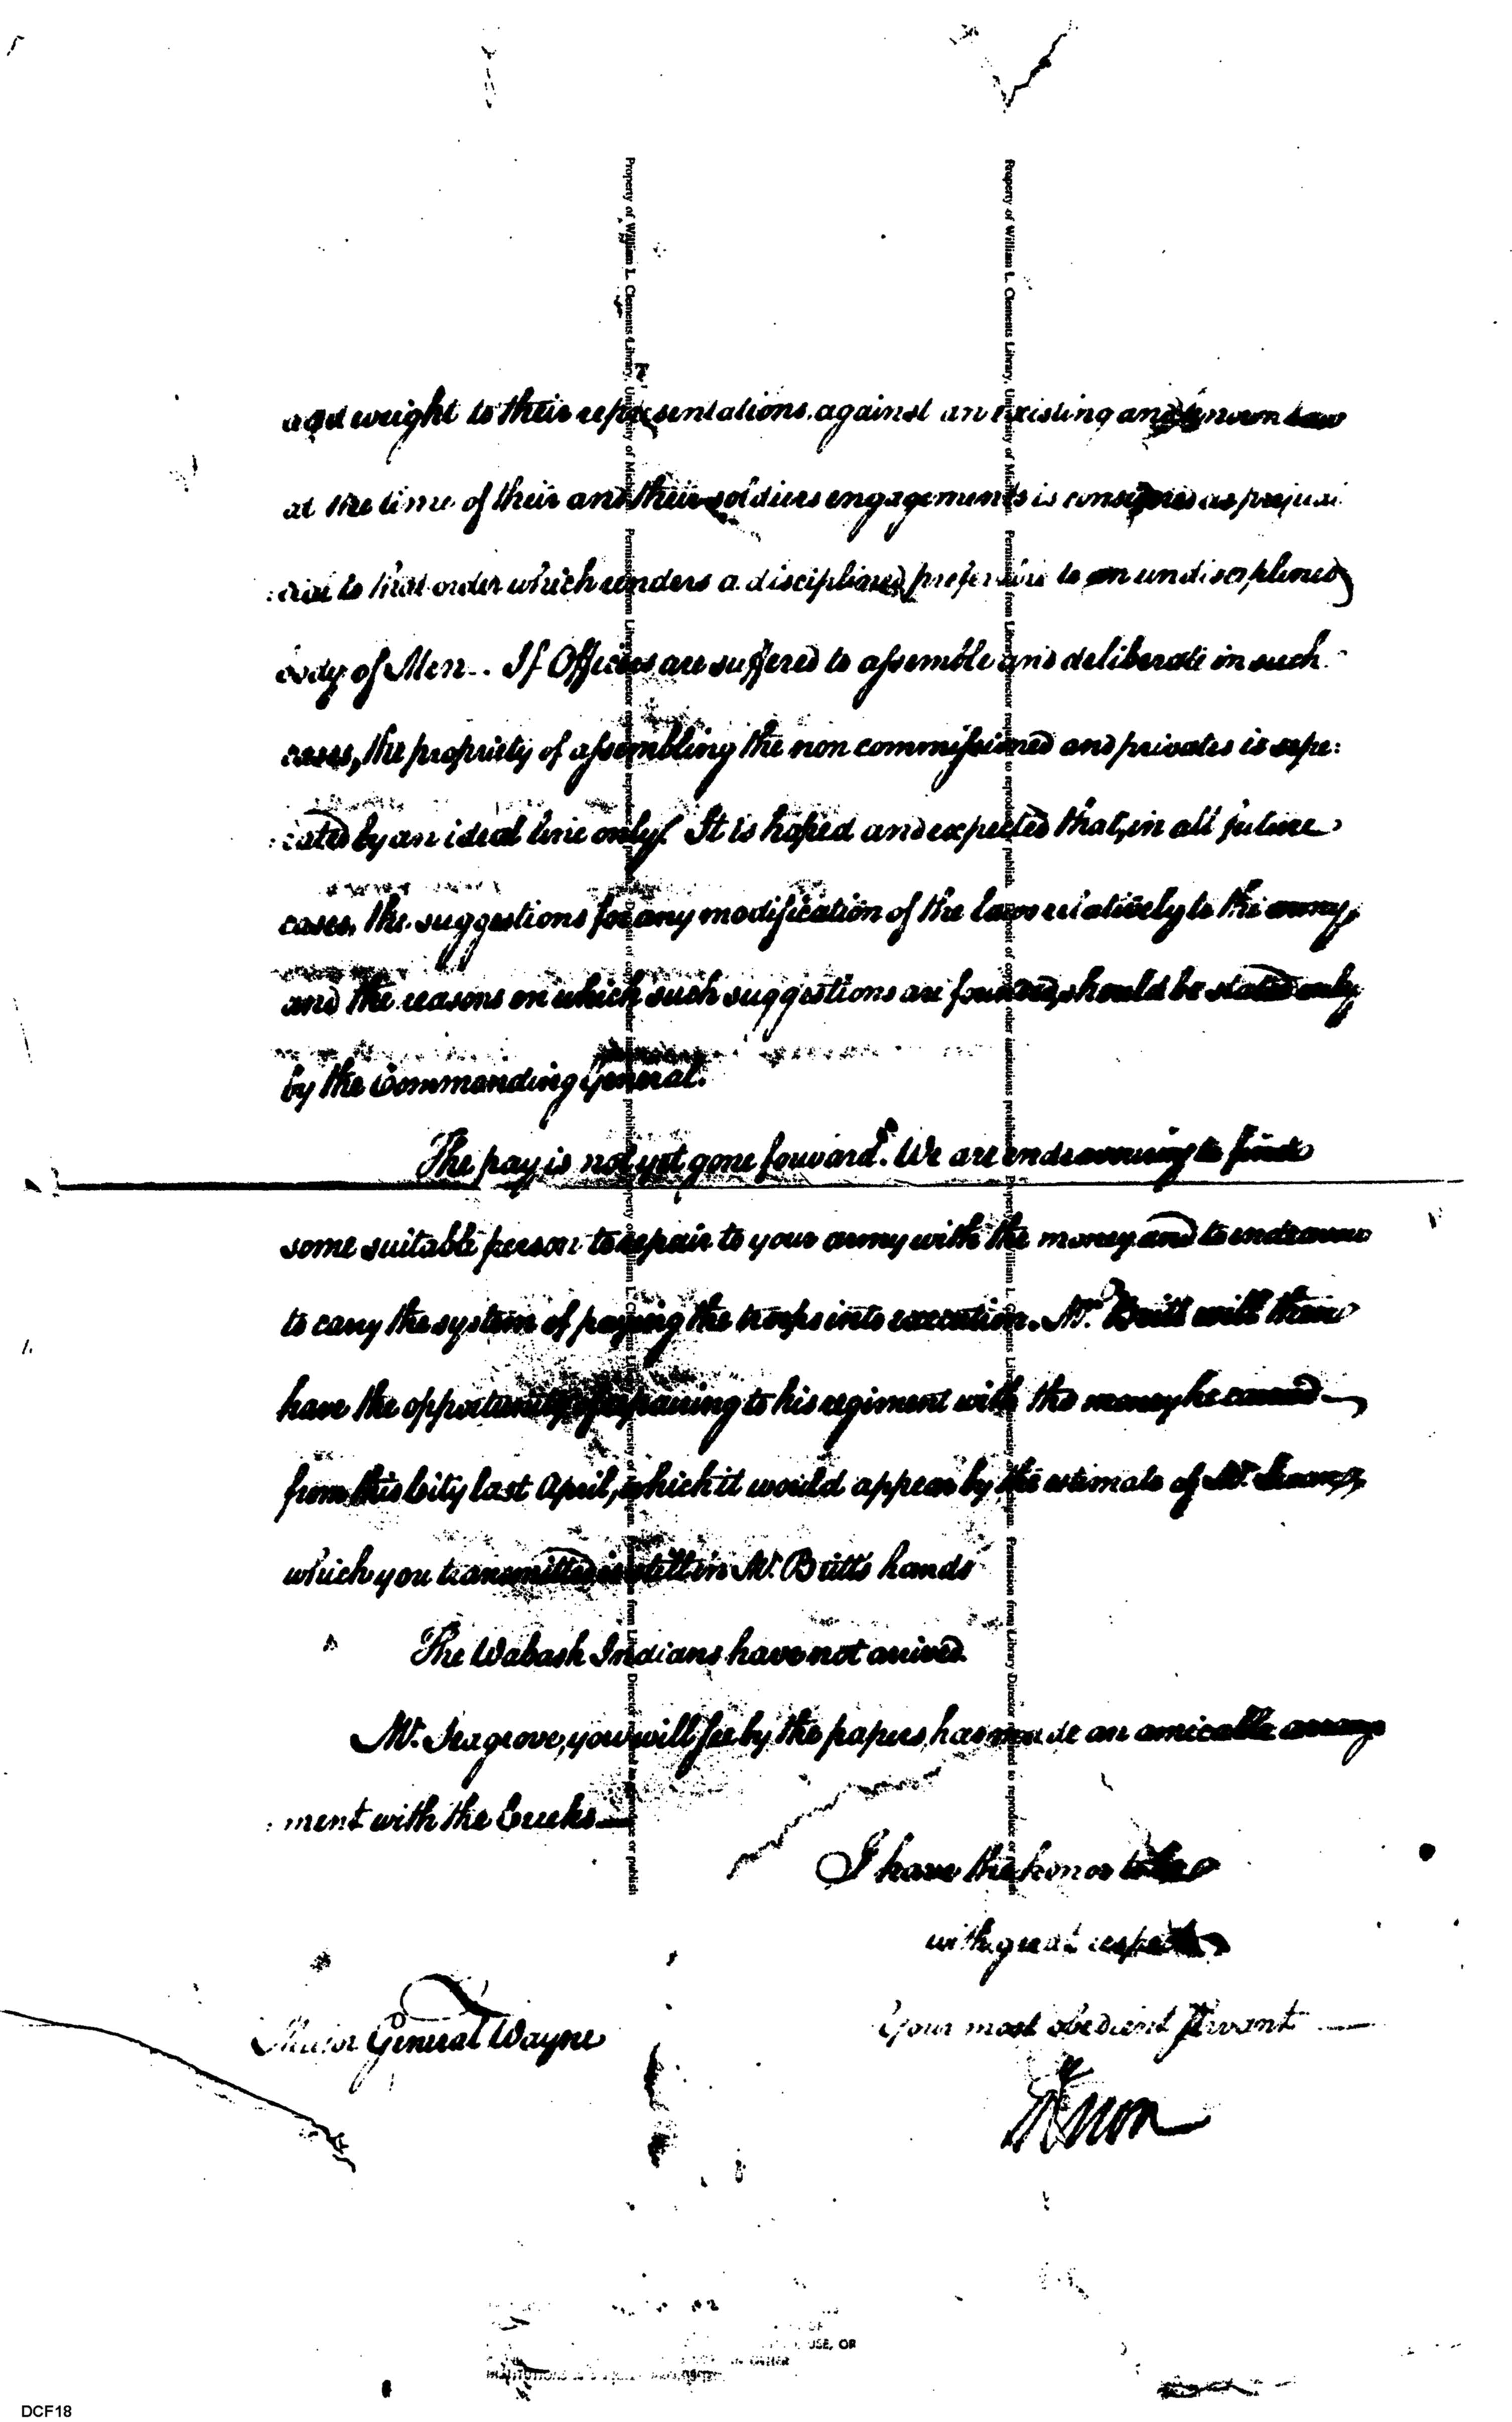 add weight to their representations against an existing and known law
at the time of their and their soldiers engagements is considered as prejudi
:cial to that order which renders a disciplined, preferable to an undisciplined
body of Men.. If Officers are suffered to assemble and deliberate in such
cases, the propriety of assembling the non commissioned and privates is sepe:
:rated by an ideal line only. It is hoped and expected that, in all future
cases, the suggestions for any modification of the laws relatively to the army,
and the reasons on which such suggestions are founded, should be stated only
by the Commanding General.
The pay is not yet gone forward. We are endeavouring to find
some suitable person to repair to your army with the money and to endeavour
to cary the system of paying the troops into execution. Mr. Britt will then
have the opportunity of repairing to his regiment with the money he carried
from this City last April, which it would appear by the estimate of Mr.
which you transmitted is still in Mr. Britts hands
The Wabash Indians have not arrived.
Mr. Seagrove, you will see by the papers, has made an amicable arrange
:ment with the Creeks—
I have the honor to be
with great respect
Your most obedient Servant —
Major General Wayne
HKnox
Property of William L. Clements Library, University of Michigan. Permission from Library Director required to reproduce or publish. Deposit of copies in other institutions prohibited.
Property of William L. Clements Library, University of Michigan. Permission from Library Director required to reproduce or publish
Property of William L. Clements Library, University of Michigan. Permission from Library Director required to reproduce or publish. Deposit of copies in other institutions prohibited.
Property of William L. Clements Library, University of Michigan. Permission from Library Director required to reproduce or publish
USE, OR
DCF18